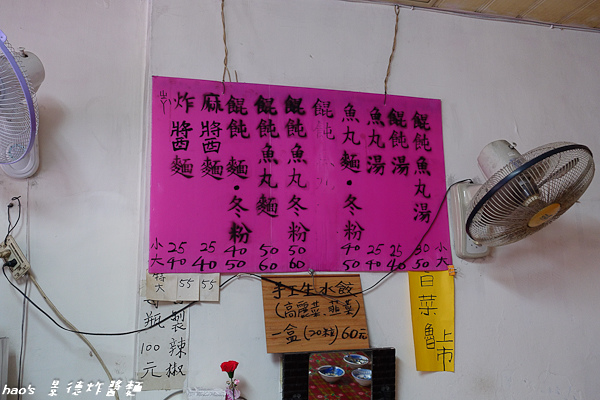 炸醬麵 小25 大40
麻醬麵 小25 大40
餛飩麵・冬粉 40 50
餛飩魚丸麵 50 60
餛飩魚丸冬粉 50 60
餛飩
魚丸麵・冬粉 40 50
魚丸湯 25 40
餛飩湯 25 40
餛飩魚丸湯 30 50
特大 55 55
手工生水餃
(高麗菜.韭菜)
一盒(20粒)60元
白菜魯
上市
製辣椒
瓶100元
hao's 景德炸醬麵